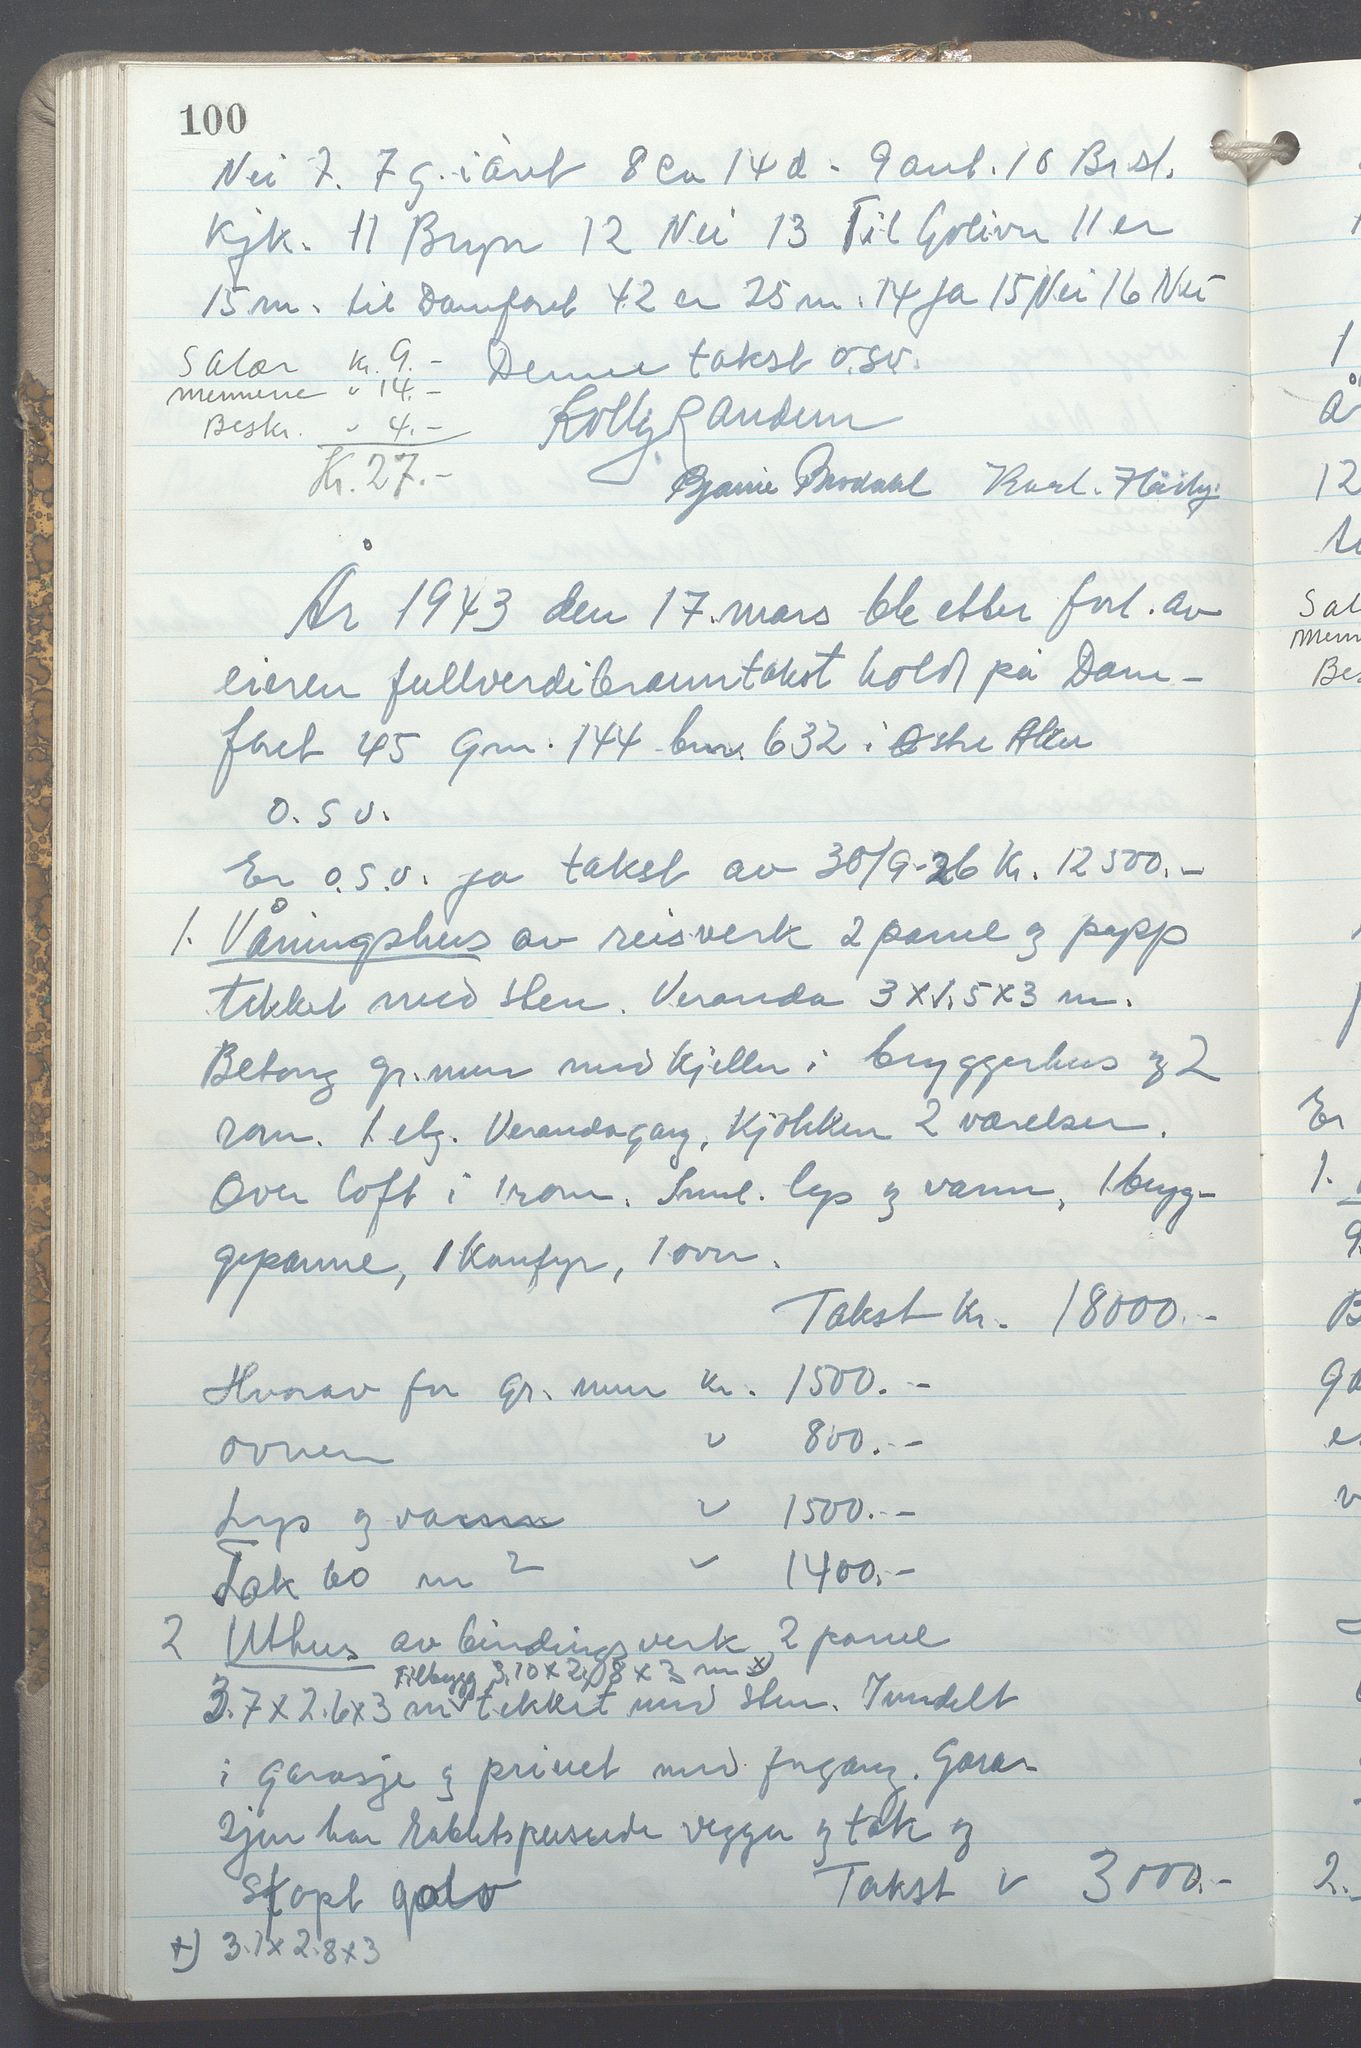 100
Nei 7. 7 g. i året 8 ca 14 d. 9 anb. 10 Br.st.
Kjk. 11 Bryn 12 Nei 13 Til Golivn 11 er
15 m. til Damfaret 42 er 25 m. 14 ja 15 Nei 16 Nei
Salær Kr. 9.- Denne takst o.sv.
Mennene " 14.-
Beskr. " 4.-
Kr. 27.-
Kolbj Randem
Bjarne Brodahl Karl. Høiby.
År 1943 den 17. mars ble etter forl. av
eieren fullverdibranntakst hold på Dam-
faret 45 Gnr. 144 bnr. 632 i Østre Aker
o. s v.
Er o.s.v. ja takst av 30/9-26 Kr. 12500.-
1. Våningshus av reisverk 2 panel og papp
tekket med sten. Veranda 3 x 1.5 x 3 m.
Betong gr.mur med kjeller i bryggerhus og 2
rom. 1 etg. Verandagang, Kjøkken 2 værelser.
Over loft i 1 rom. Innl. lys og vann, 1 bryg-
gepanne, 1 Komfyr, 1 ovn.
Takst Kr. 18000.-
Hvorav for gr. mur Kr. 1500.-
ovnen " 800.-
Lys og vann " 1500.-
Tak 60 m2 " 1400.-
2 Uthus av bindingsverk 2 panel
Tilbygg 3.10 x 2.8 x 3 m x)
3.7 x 2.6 x 3 m tekket med sten. Inndelt
i garasje og privet med forgang. Gara-
sjen har rabitspussede vegger og tak og
støpt golv Takst " 3000.-
x) 3.1 x 2.8 x 3